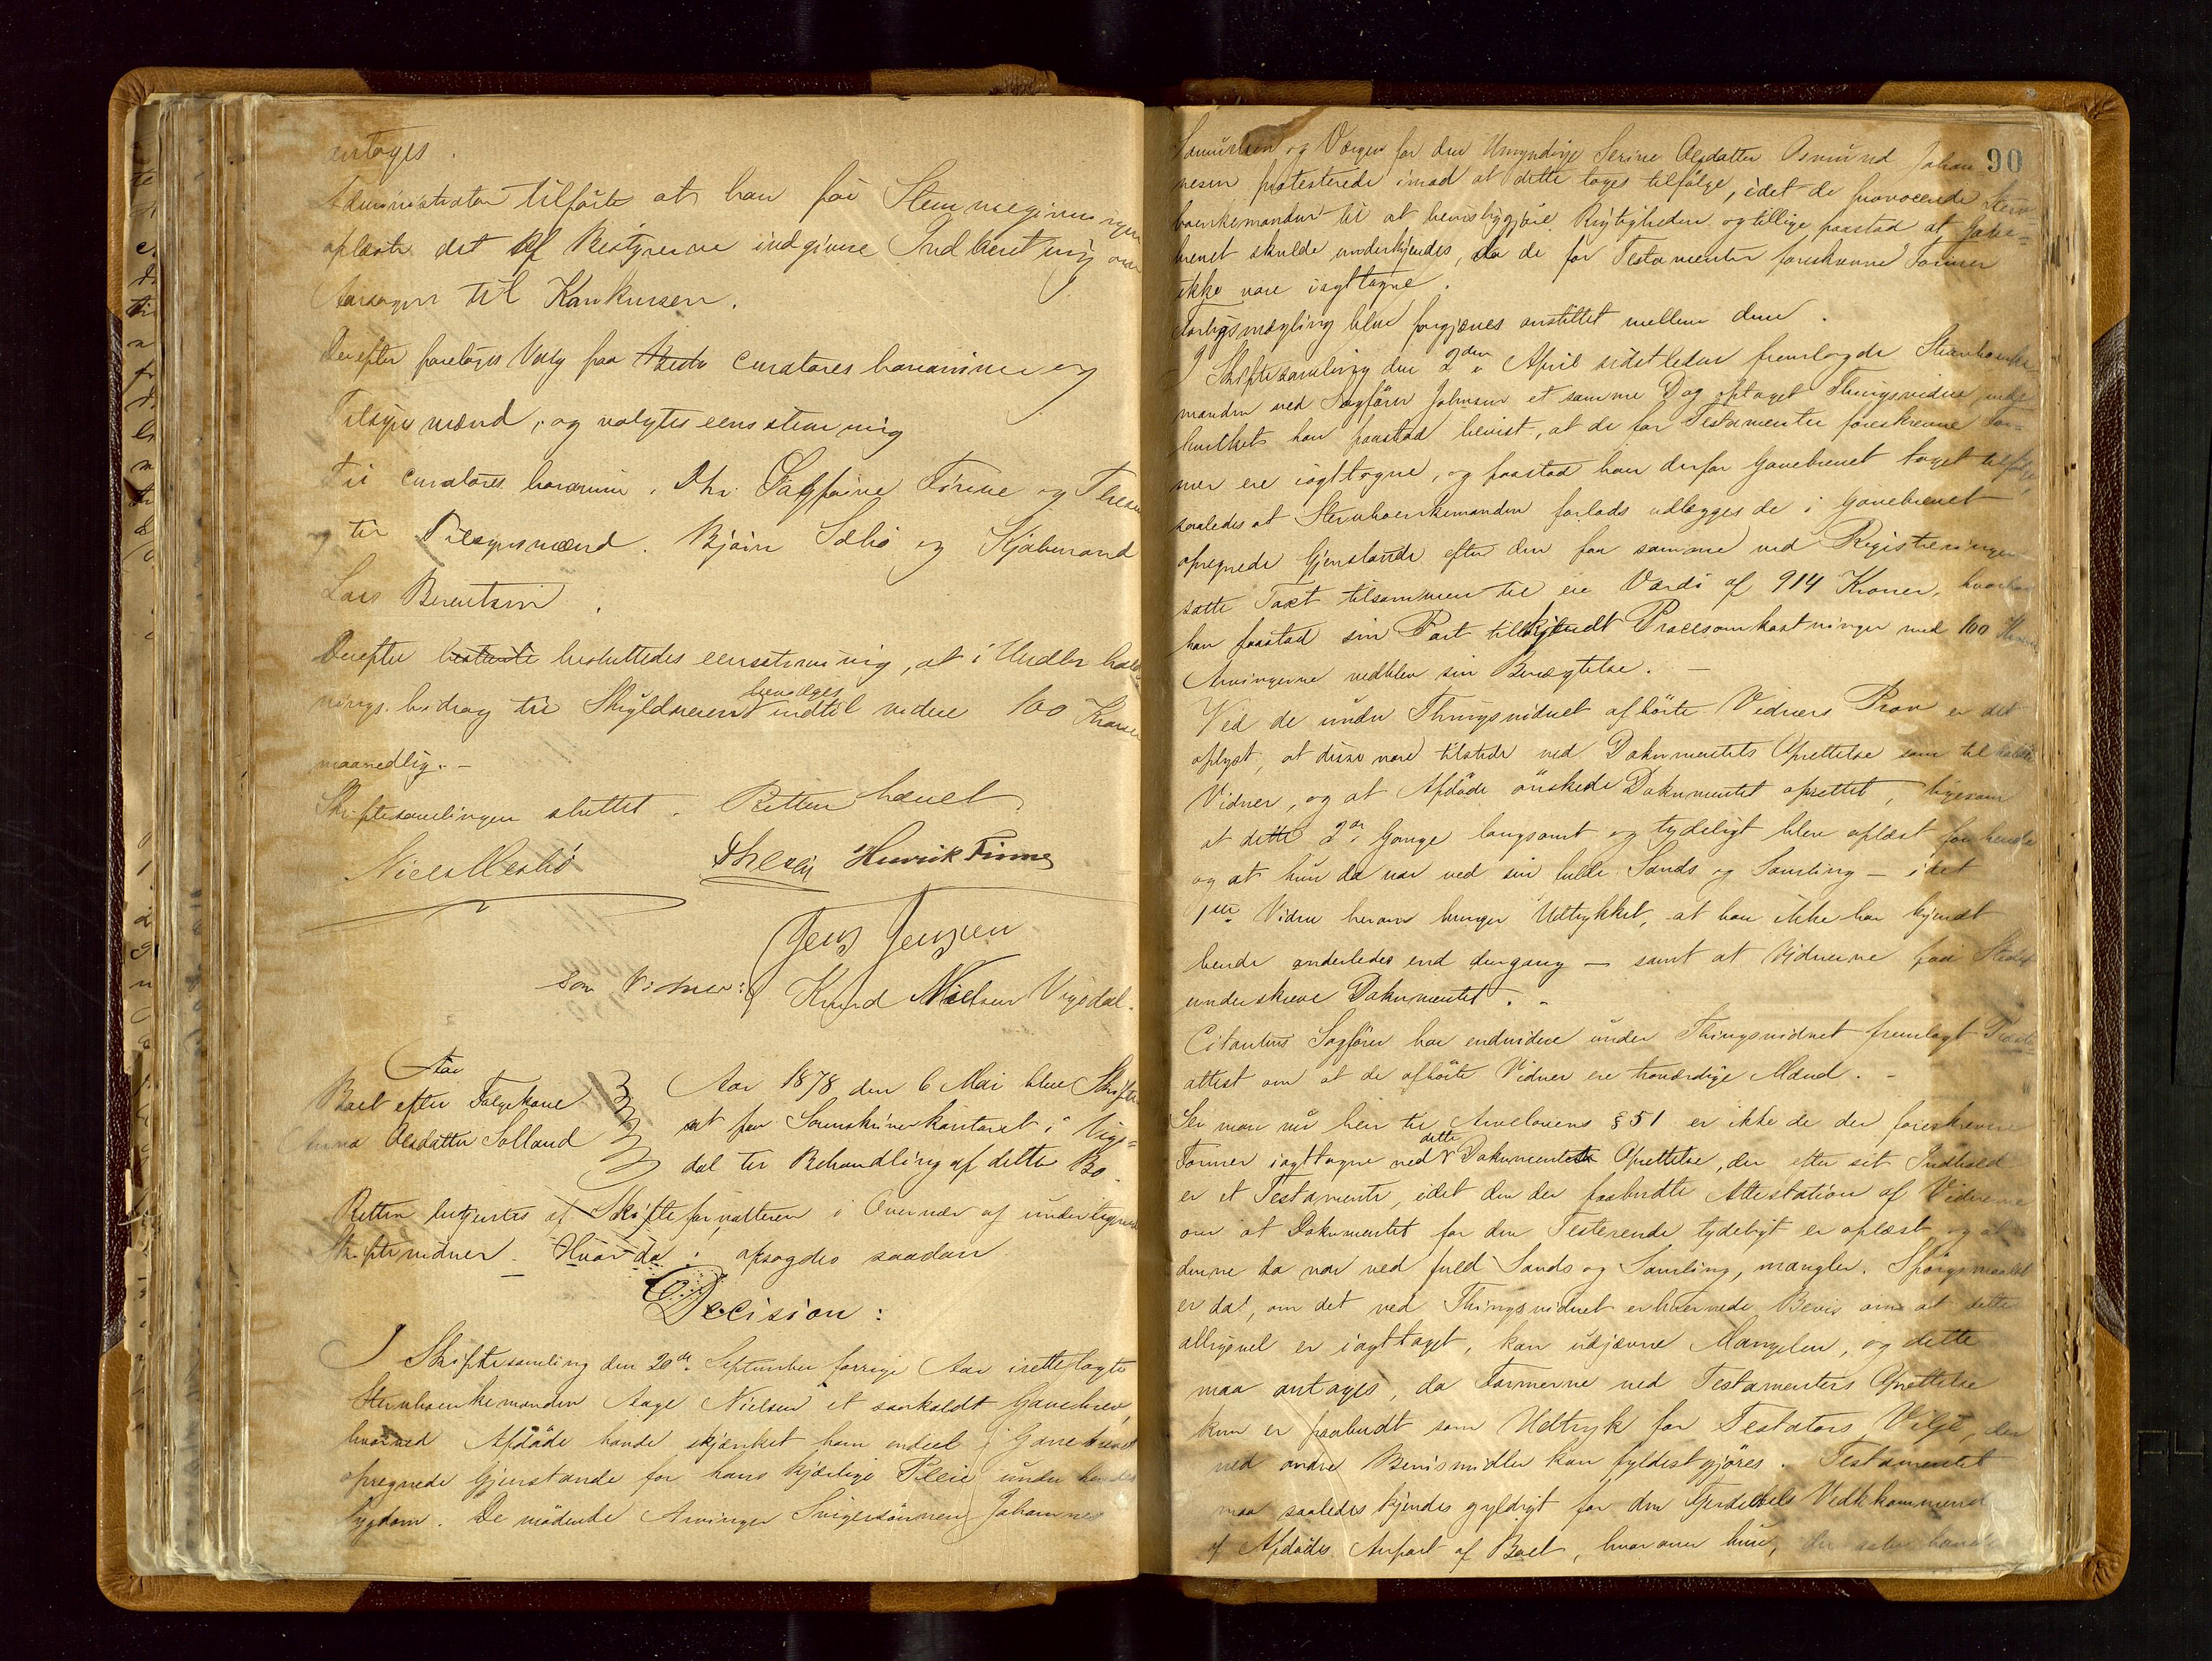 antages.
Administrator tilførte at han før Stemmegivningen
oplæste det af Bestyrerne indgivne Indberetning om
Aarsagen til Konkursen.
Derefter foretoges Valg paa curatores bonorum og
Tilsynsmænd, og valgtes eensstemmig
til curatores bonorum, Dhr. Sagførere Finne og
og til Tilsynsmænd. Bjørn Sæbø og Kjøbmand
Lars Berentsen.
Derefter bestemte besluttedes eensstemmig, at i Underhold-
nings bidrag til Skyldneren bevilges indtil videre 100 Kroner
maanedlig. -
Skiftesamlingen sluttet. Retten hævet.
Henrik Finne
Jens Jensen
som Vidner: Knud Nielsen Vigedal.
Aar
Boet efter Følgekone
Anna Olsdatter Solland
Aar 1878 den 6 Mai blev Skifte-
ret paa Sorenskriverkontoret i Vige-
dal til Behandling af dette Bo.
Retten betjentes af Skifteforvalteren i Overvær af undertegnede
Skiftevidner. Hvorda: afsagdes saadan
Decision:
I Skiftesamling den 20de September forrige Aar irettelagte
Stervboenkemanden Aage Nielsen et saakaldt Gavebrev,
hvorved Afdøde havde skjænket ham endeel i Gavebrevet
opregnede Gjenstande for hans kjærlige Pleie under hendes
Sygdom. De mødende Arvinger Svigersønnen Johannes
90
Samuelsen og Værgen for den Umyndige Serine Olsdatter Osmund Johan
nesen protesterede imod at dette toges tilfølge, idet de provocerede Sterv-
boenkemanden til at bevisliggjøre Rigtigheden og tillige paastod at Gave-
brevet skulde underkjendes, da de for Testamenter foreskrevne Former
ikke vare iagttagne.
Forligsmægling blev forgjæves anstillet mellem dem.
I Skiftesamling den 2den April sidstleden fremlagde Stervboenke-
manden ved Sagfører Johnsen et samme Dag optaget Thingsvidne, ved
hvilket han paastod bevist, at de for Testamenter foreskrevne For-
mer ere iagttagne, og paastod han derfor Gavebrevet taget tilfølge,
saaledes at Stervboenkemanden forlods udlægges de i Gavebrevet
opregnede Gjenstande efter den paa samme ved Registreringen
satte Taxt tilsammen til en Værdi af 914 Kroner, hvorhos
han paastod sin Part tilkjendt Procesomkostninger med 100 Kroner
Arvingerne vedblev sin Benægtelse. -
Ved de under Thingsvidnet afhørte Vidners Prov er det
oplyst, at disse vare tilstede ved Dokumentets Oprettelse som tilkaldte
Vidner, og at Afdøde ønskede Dokumentet oprettet, ligesom
at dette 2de Gange langsomt og tydeligt blev oplæst for hende
og at hun da var ved sin fulde Sands og Samling - idet
1ste Vidne herom bruger Udtrykket, at han ikke har kjendt
hende anderledes end dengang - samt at Vidnerne paa Stedet
underskrev Dokumentet. -
Citantens Sagfører har endvidere under Thingsvidnet fremlagt Præste-
attest om at de afhørte Vidner ere troværdige Mænd. -
Ser man nu hen til Arvelovens § 51 er ikke de der foreskrevne
Former iagttagne ved dette Dokuments Oprettelse, der efter sit Indhold
er et Testamente, idet den der paabudte Attestation af Vidnerne
om at Dokumentet for den Testerende tydeligt er oplæst og at
denne da var ved fuld Sands og Samling, mangler. Spørgsmaalet
er da, om det ved Thingsvidnet erhvervede Bevis om at dette
alligevel er iagttaget, kan udjævne Mangelen, og dette
maa antages, da Formerne ved Testamenters Oprettelse
kun er paabudt som Udtryk for Testators Vilje, der
ved andre Bevismidler kan fyldestgjøres. Testamentet
maa saaledes kjendes gyldigt for den Vedkommende
af Afdødes Anpart af Boet, hvorover hun,